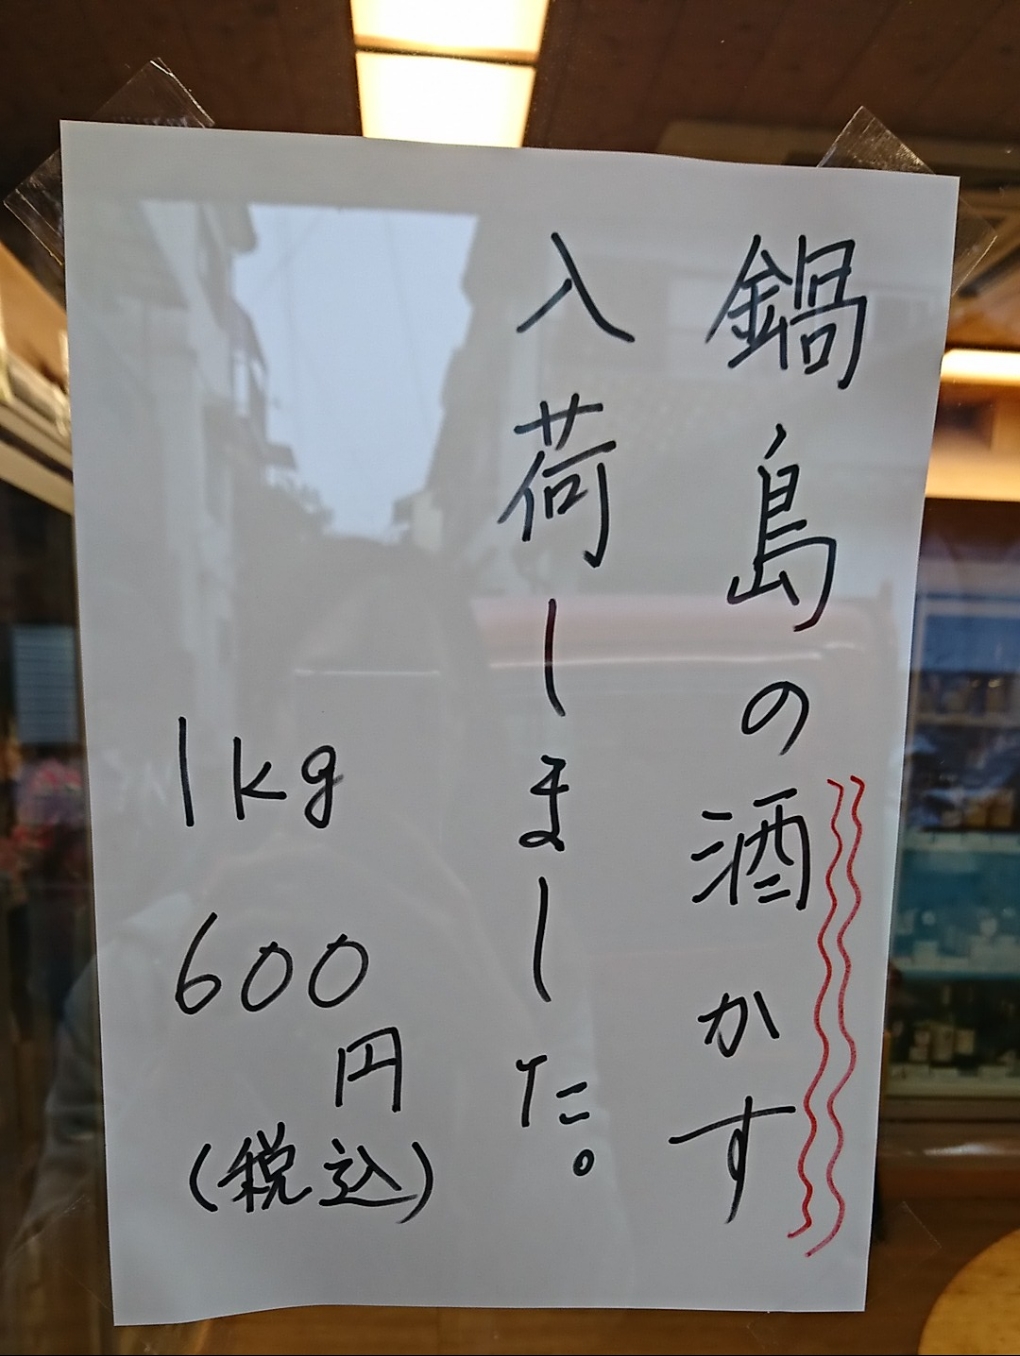 鍋島の酒かす
入荷しました。
1kg
600
円
(税込)